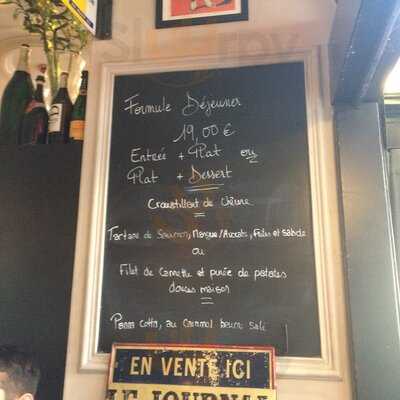 Formule Déjeuner
19,00 €
Entrée + Plat ou
Plat + Dessert
Croustillant de Chèvre
Tartare de Saumon, Mangue/Avocats, Frites et Salade
ou
Filet de Canette et purée de patates
douces maison
Panna Cotta, au Caramel beurre Salé
EN VENTE ICI
LE JOURNAL